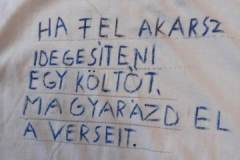 HA FEL AKARSZ
IDEGESÍTENI
EGY KÖLTŐT,
MAGYARÁZD EL
A VERSEIT.